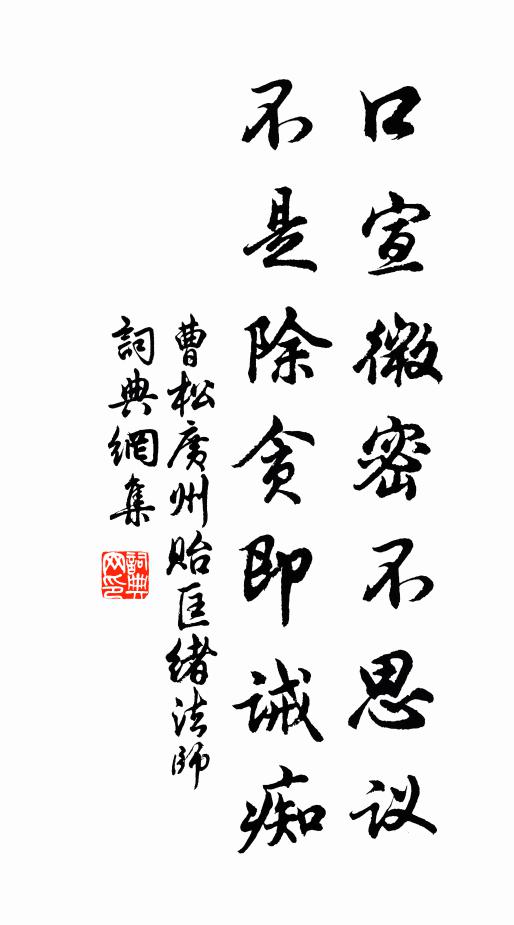 口宣微密不思议
不是除贪即诫痴
曹松廣州貽匡緒法師
詞典網集
詞典
网印